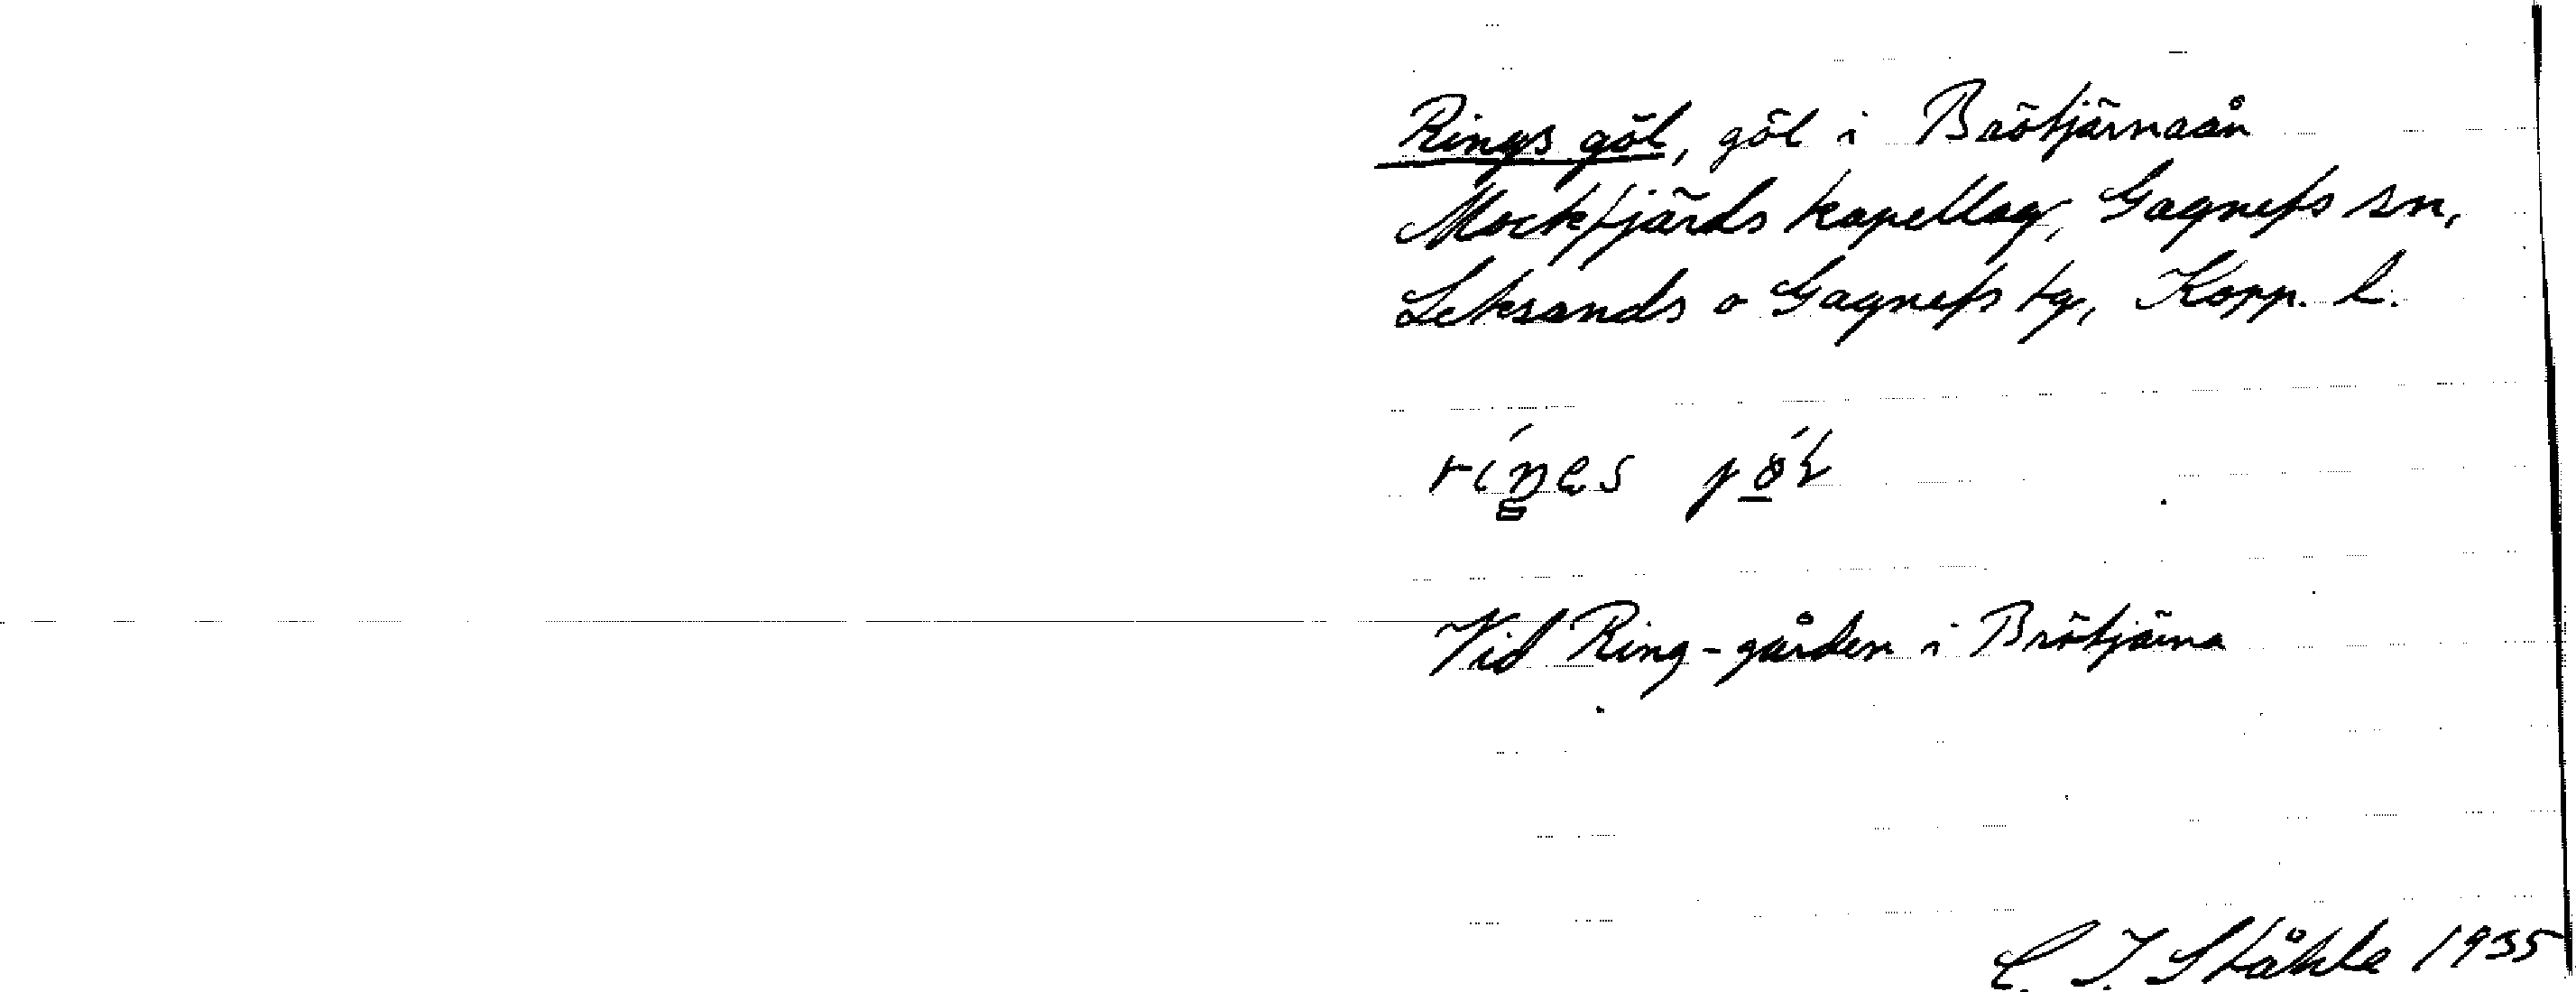 Rings göl, göl i Brötjärnaån
Mockfjärds kapellag, Gagnefs sn,
Leksands o Gagnefs tg, Kopp. l.
Vid Ring-gården i Brötjärna
C. I. Ståhle 1935